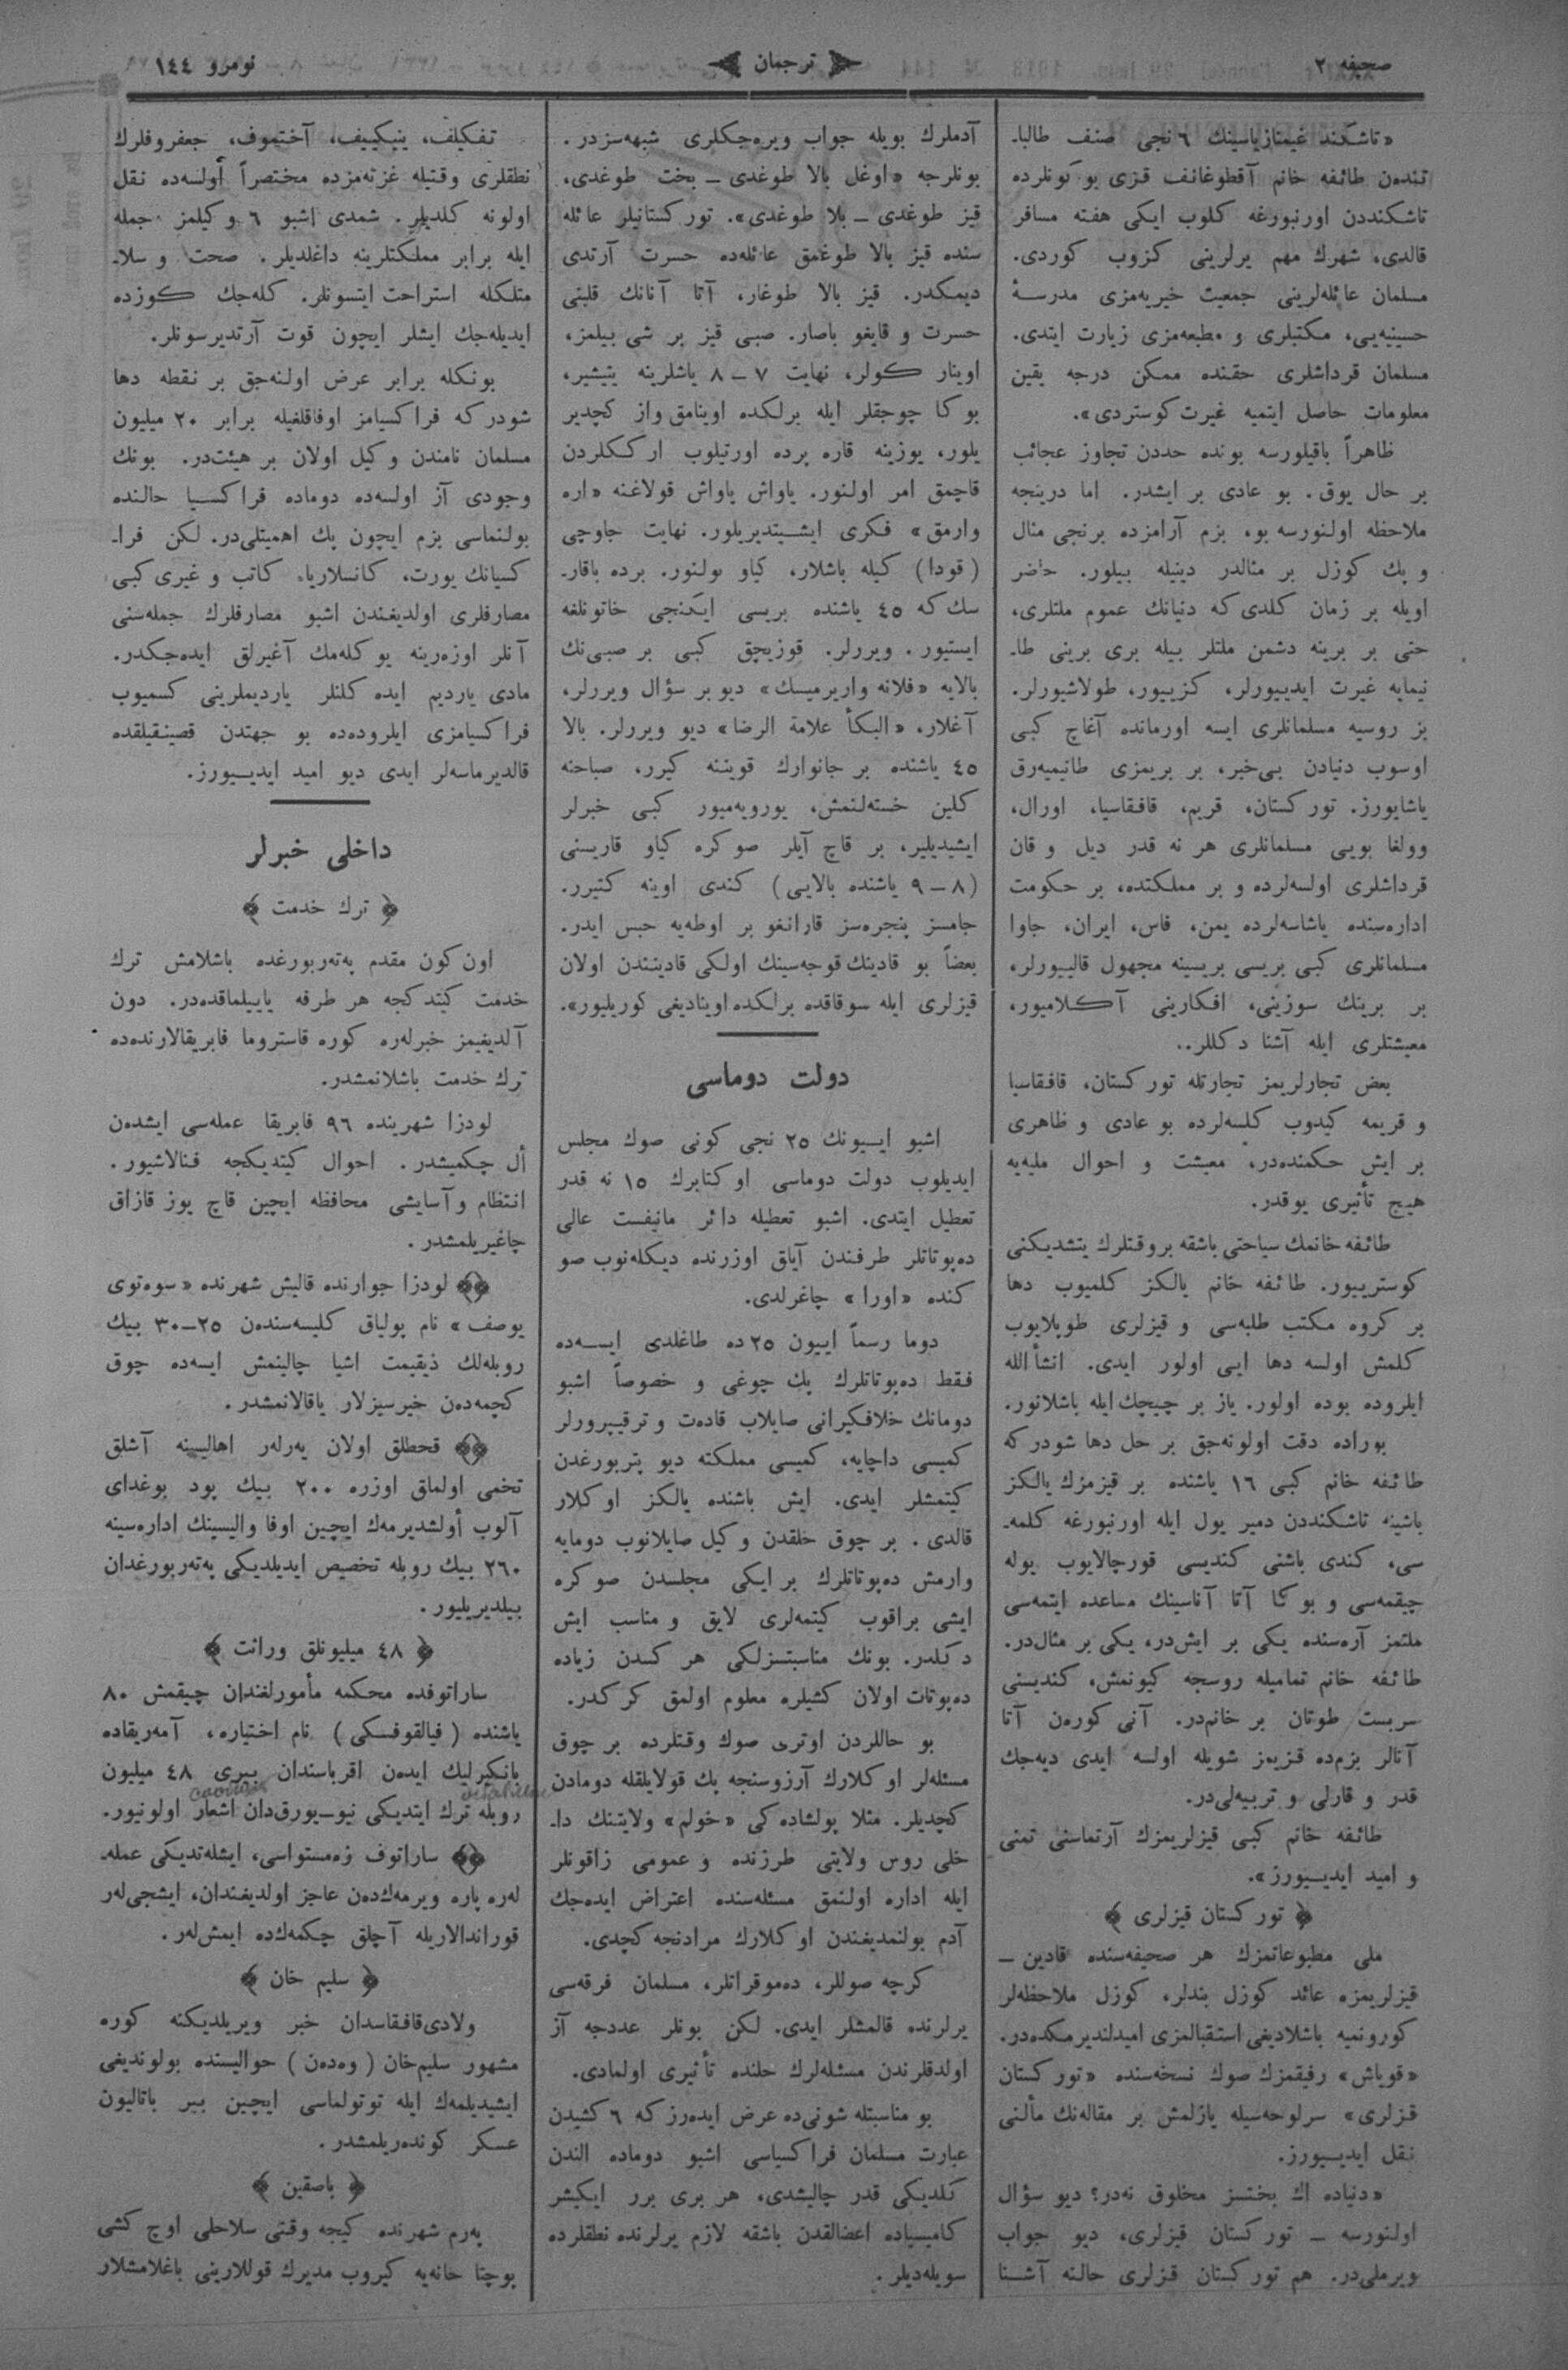 صحیفه ٢
ترجمان
نومرو ١٤٤
«تاشكند غیمنازیاسینك ٦ نجی صنف طالبا-
تندەن طائفه خانم آقطوغانف قزی بو كونلرده
تاشكنددن اورنبورغه كلوب ایكی هفته مسافر
قالدی، شهرك مهم یرلرینی كزوب كوردی.
مسلمان عائلەلرینی جمعیت خیریەمزی مدرسۀ
حسینیەیی، مكتبلری و مطبعەمزی زیارت ایتدی.
مسلمان قرداشلری حقنده ممكن درجه یقین
معلومات حاصل ایتمیه غیرت كوستردی».
ظاهراً باقیلورسه بونده حددن تجاوز عجائب
بر حال یوق. بو عادی بر ایشدر. اما درینجه
ملاحظه اولنورسه بو، بزم آرامزده برنجی مثال
و پك كوزل بر مثالدر دینیله بیلور. حاضر
اویله بر زمان كلدی كه دنیانك عموم ملتلری،
حتی بر برینه دشمن ملتلر بیله بری برینی طا-
نیمایه غیرت ایدییورلر، كزییور، طولاشیورلر.
بز روسیه مسلمانلری ایسه اورمانده آغاچ كبی
اوسوب دنیادن بی‌خبر، بر بریمزی طانیمیەرق
یاشایورز. توركستان، قریم، قافقاسیا، اورال،
وولغا بویی مسلمانلری هر نه قدر دیل و قان
قرداشلری اولسەلرده و بر مملكتده، بر حكومت
ادارەسنده یاشاسەلرده یمن، فاس، ایران، جاوا
مسلمانلری كبی بریسی بریسینه مجهول قالییورلر،
بر برینك سوزینی، افكارینی آكلامیور،
معیشتلری ایله آشنا دكللر..
بعض تجارلریمز تجارتله توركستان، قافقاسیا
و قریمه كیدوب كلسەلرده بو عادی و ظاهری
بر ایش حكمندەدر، معیشت و احوال ملیەیه
هیج تأثیری یوقدر.
طائفه خانمك سیاحتی باشقه بروقتلرك یتشدیكنی
كوسترییور. طائفه خانم یالكز كلمیوب دها
بر كروه مكتب طلبەسی و قیزلری طوپلایوب
كلمش اولسه دها ایی اولور ایدی. انشأالله
ایلروده بوده اولور. یاز بر چیچك ایله باشلانور.
بوراده دقت اولونەجق بر حل دها شودركه
طائفه خانم كبی ١٦ یاشنده بر قیزمزك یالكز
باشینه تاشكنددن دمیر یول ایله اورنبورغه كلمه-
سی، كندی باشنی كندیسی قورچالایوب یوله
چیقمەسی و بوكا آتا آناسینك مساعده ایتمەسی
ملتمز آرەسنده یكی بر ایش‌در، یكی بر مثال‌در.
طائفه خانم تمامیله روسجه كیونمش، كندیسنی
سربست طوتان بر خانم‌در. آنی كورەن آتا
آنالر بزم‌ده قزیمز شویله اولسه ایدی دیەجك
قدر و قارلی و تربیەلی‌در.
طائفه خانم كبی قیزلریمزك آرتماسنی تمنی
و امید ایدییورز».
توركستان قیزلری
ملی مطبوعاتمزك هر صحیفەسنده قادین —
قیزلریمزه عائد كوزل بندلر، كوزل ملاحظەلر
كورونمیه باشلادیغی استقبالمزی امیدلندیرمكدەدر.
«قویاش» رفیقمزك صوك نسخەسنده «توركستان
قزلری» سرلوحەسیله یازلمش بر مقالەنك مألنی
نقل ایدییورز.
«دنیاده اك بختسز مخلوق نەدر؟ دیو سؤال
اولنورسه — توركستان قیزلری، دیو جواب
ویرملی‌در. هم توركستان قزلری حالنه آشنا
آدملرك بویله جواب ویرەجكلری شبهەسزدر.
بونلرجه «اوغل بالا طوغدی — بخت طوغدی،
قیز طوغدی — بلا طوغدی». توركستانیلر عائله
سنده قیز بالا طوغمق عائلەده حسرت آرتدی
دیمكدر. قیز بالا طوغار، آتا آنانك قلبنی
حسرت و قایغو باصار. صبی قیز بر شی بیلمز،
اوینار كولر، نهایت ٧—٨ یاشلرینه یتیشیر،
بوكا چوجقلر ایله برلكده اوینامق واز كچدیر
یلور، یوزینه قاره پرده اورتیلوب ارككلردن
قاچمق امر اولنور. یاواش یاواش قولاغنه «اره
وارمق» فكری ایشیتدیریلور. نهایت جاوچی
(قودا) كیله باشلار، كیاو بولنور. پرده باقار-
سك كه ٤٥ یاشنده بریسی ایكنجی خاتونلغه
ایستیور. ویررلر. قوزیچق كبی بر صبی‌نك
بالایه «فلانه واریرمیسك» دیو بر سؤال ویررلر،
آغلار، «البكأ علامة الرضا» دیو ویررلر. بالا
٤٥ یاشنده بر جانوارك قویننه كیرر، صباحنه
كلین خستەلنمش، یورویەمیور كبی خبرلر
ایشیدیلیر، بر قاچ آیلر صوكره كیاو قاریسنی
(٨—٩ یاشنده بالایی) كندی اوینه كتیرر.
جامسز پنجرەسز قارانغو بر اوطەیه حبس ایدر.
بعضاً بو قادینك قوجەسینك اولكی قادیننندن اولان
قیزلری ایله سوقاقده برلكده اوینادیغی كوریلیور».
دولت دوماسی
اشبو ایییونك ٢٥ نجی كونی صوك مجلس
ایدیلوب دولت دوماسی اوكتابرك ١٥ نه قدر
تعطیل ایتدی. اشبو تعطیله دائر مانیفست عالی
دەپوتاتلر طرفندن آیاق اوزرنده دیكلەنوب صو
كنده «اورا» چاغرلدی.
دوما رسماً ایییون ٢٥ده طاغلدی ایسەده
فقط دەپوتاتلرك پك چوغی و خصوصاً اشبو
دومانك خلافكیرانی صایلاب قادەت و ترقیپرورلر
كمیسی داچایه، كمیسی مملكته دیو پتربورغدن
كیتمشلر ایدی. ایش باشنده یالكز اوكلار
قالدی. بر چوق خلقدن وكیل صایلانوب دومایه
وارمش دەپوتاتلرك بر ایكی مجلسدن صوكره
ایشی براقوب كیتمەلری لایق و مناسب ایش
دكلدر. بونك مناسبتسزلكی هر كسدن زیاده
دەپوتات اولان كشیلره معلوم اولمق كركدر.
بو حاللردن اوتری صوك وقتلرده بر چوق
مسئلەلر اوكلارك آرزوسنجه پك قولایلقله دومادن
كچدیلر. مثلا پولشادەكی «خولم» ولایتنك دا-
خلی روس ولایتی طرزنده و عمومی زاقونلر
ایله اداره اولنمق مسئلەسنده اعتراض ایدەجك
آدم بولنمدیغندن اوكلارك مرادنجه كچدی.
كرچه صوللر، دەموقراتلر، مسلمان فرقەسی
یرلرنده قالمشلر ایدی. لكن بونلر عددجه آز
اولدقلرندن مسئلەلرك حلنده تأثیری اولمادی.
بو مناسبتله شونی‌ده عرض ایدەرز كه ٦ كشیدن
عبارت مسلمان فراكسیاسی اشبو دوماده الندن
كلدیكی قدر چالیشدی، هر بری برر ایكیشر
كامیسیاده اعضالقدن باشقه لازم یرلرنده نطقلرده
سویلەدیلر.
تفكیلف، ینیكییف، آختموف، جعفروفلرك
نطقلری وقتیله غزتەمزده مختصراً أولسەده نقل
اولونه كلدیلر. شمدی اشبو ٦ وكیلمز جمله
ایله برابر مملكتلرینه داغلدیلر. صحت و سلا-
متلكله استراحت ایتسونلر. كلەجك كوزده
ایدیلەجك ایشلر ایچون قوت آرتدیرسونلر.
بونكله برابر عرض اولنەجق بر نقطه دها
شودركه فراكسیامز اوفاقلغیله برابر ٢٠ میلیون
مسلمان نامندن وكیل اولان بر هیئت‌در. بونك
وجودی آز اولسەده دوماده فراكسیا حالنده
بولنماسی بزم ایچون پك اهمیتلی‌در. لكن فرا-
كسیانك یورت، كانسلاریا، كاتب و غیری كبی
مصارفلری اولدیغندن اشبو مصارفلرك جملەسنی
آنلر اوزەرینه یوكلەمك آغیرلق ایدەجكدر.
مادی یاردیم ایده كلنلر یاردیملرینی كسمیوب
فراكسیامزی ایلرودەده بو جهتدن قصینقیلقده
قالدیرماسەلر ایدی دیو امید ایدییورز.
داخلی خبرلر
ترك خدمت
اون كون مقدم پەتەربورغده باشلامش ترك
خدمت كیتدكجه هر طرفه یاییلماقدەدر. دون
آلدیغیمز خبرلەره كوره قاستروما فابریقالارندەده
ترك خدمت باشلانمشدر.
لودزا شهرینده ٩٦ فابریقا عملەسی ایشدەن
أل چكمیشدر. احوال كیتدیكجه فنالاشیور.
انتظام و آسایشی محافظه ایچین قاچ یوز قازاق
چاغیریلمشدر.
لودزا جوارنده قالیش شهرنده «سوەتوی
یوصف» نام پولیاق كلیسەسندەن ٢٥—٣٠ بیك
روبلەلك ذیقیمت اشیا چالینمش ایسەده چوق
كچمەدەن خیرسیزلار یاقالانمشدر.
قحطلق اولان یەرلەر اهالیسینه آشلق
تخمی اولماق اوزره ٢٠٠ بیك پود بوغدای
آلوب أولشدیرمەك ایچین اوفا والیسینك ادارەسینه
٢٦٠ بیك روبله تخصیص ایدیلدیكی پەتەربورغدان
بیلدیریلیور.
٤٨ میلیونلق وراثت
ساراتوفده محكمه مأمورلغندان چیقمش ٨٠
یاشنده (فیالقوفسكی) نام اختیاره، آمەریقاده
بانكیرلیك ایدەن اقرباسندان بیری ٤٨ میلیون
روبله ترك ایتدیكی نیو–یورق‌دان اشعار اولونیور.
ساراتوف زەمستواسی، ایشلەتدیكی عمله-
لەره پاره ویرمەك‌دەن عاجز اولدیغندان، ایشجی‌لەر
قوراندالاریله آچلق چكمەك‌ده ایمش‌لەر.
سلیم خان
ولادی‌قافقاسدان خبر ویریلدیكنه كوره
مشهور سلیم‌خان (وەدەن) حوالیسنده بولوندیغی
ایشیدیلمەك ایله توتولماسی ایچین بیر باتالیون
عسكر كوندەریلمشدر.
باصقین
پەرم شهرنده كیجه وقتی سلاحلی اوچ كشی
پوچتا خانەیه كیروب مدیرك قوللارینی باغلامشلار